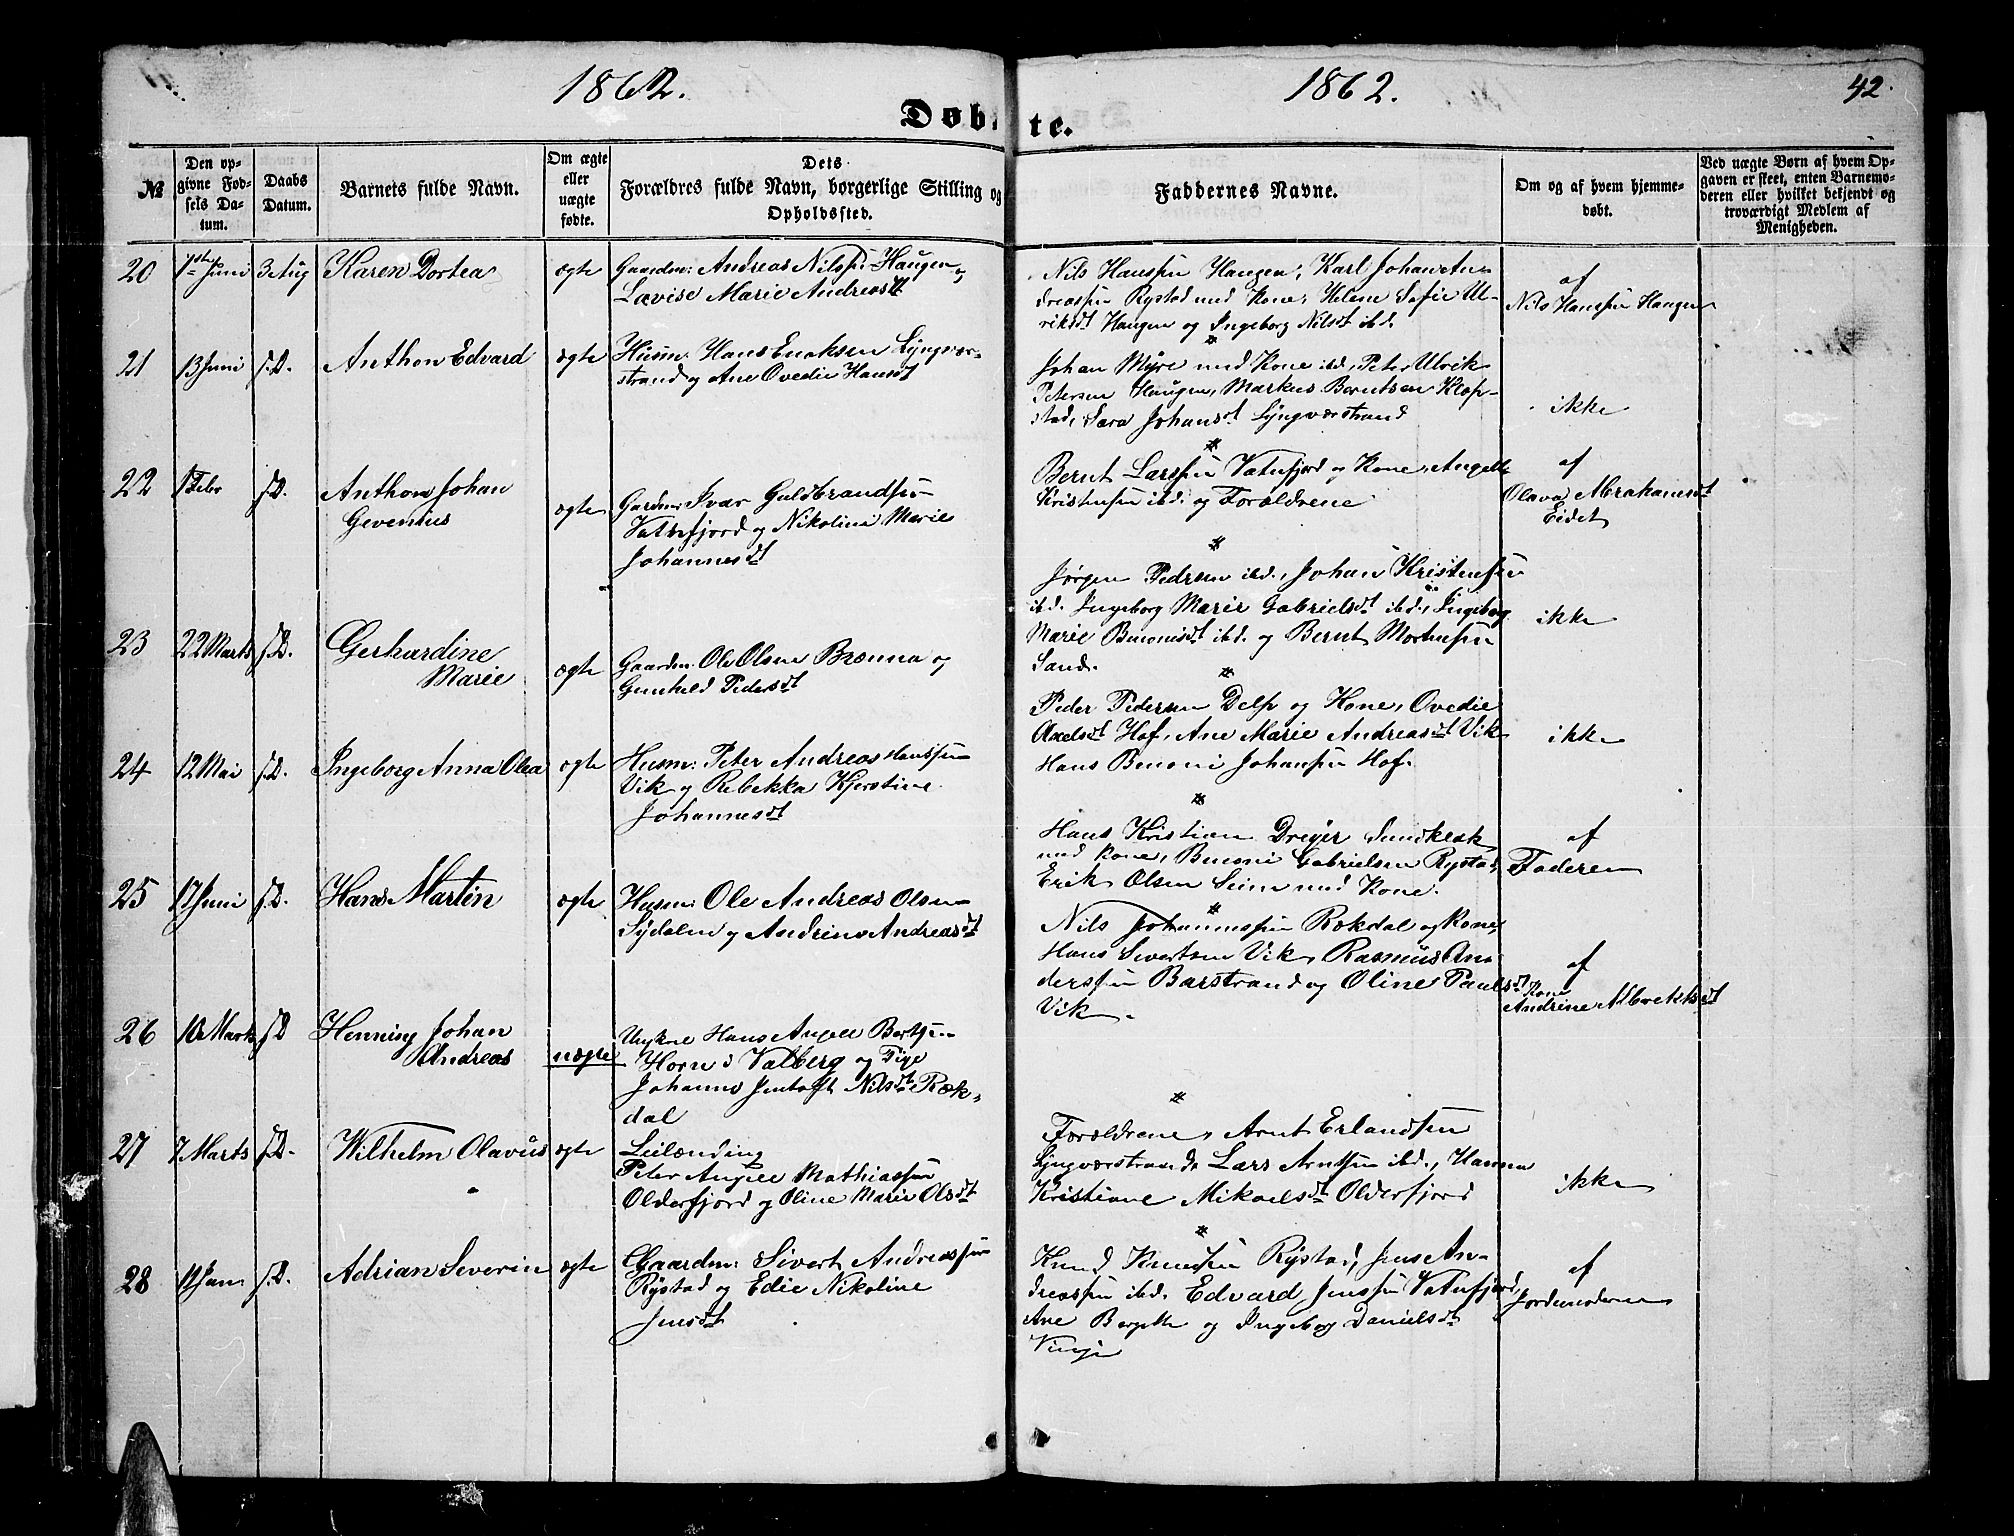 1862.
1862.
42.
Døbte.
№
Den op-
givne Fød-
sels Da-
tum.
Daabs
Datum.
Barnets fulde Navn.
Om ægte
eller
uægte
fødte.
Dets
Forældres fulde Navn, borgerlige Stilling og
Opholdssted.
Faddernes Navne.
Om og af hvem hjemme-
døbt.
Ved uægte Børn af hvem Op-
gaven er skeet, enten Barnemo-
deren eller hvilket bekjendt og
troværdigt Medlem af
Menigheden.
20
1ste Juni
3 Aug
Karen Dortea
ægte
Gaardm: Andreas Nilssen Haugen og
Lovise Marie Andreasdt
Nils Hanssen Haugen, Karl Johan An-
dreassen Rystad med Kone, Helene Sofie Ul-
riksdt Haugen og Ingeborg Nilsdt ibd.
af
Nils Hanssen Haugen
21
13 Juni
s.D.
Anthon Edvard
ægte
Husm: Hans Enoksen Lyngvær-
strand og Ane Ovedie Hansdt
Johan Myre med Kone ibd, Peter Ulrik
Petersen Haugen, Markus Berntsen Klop-
stad, Sara Johansdt Lyngværstrand
ikke
22
1 Febr
s.D.
Anthon Johan
Gevenius
ægte
Gardm: Ivar Guldbrandsen
Vatnfjord og Nikoline Marie
Johannesdt
Bernt Larssen Vatnfjord og Kone, Angell
Kristensen ibd. og Forældrene
af
Olava Abrahamsdt
Eidet
23
22 Marts
s.D.
Gerhardine
Marie
ægte
Gaardm: Ole Olsen Brenna og
Gunhild Pedersdt
Jørgen Pedersen ibd., Johan Kristensen
ibd. Ingeborg Marie Gabrielsdt ibd., Ingeborg
Marie Benonisdt ibd. og Bernt Mortensen
Sand.
ikke
24
12 Mai
s.D.
Ingeborg Anna Olea
ægte
Husm: Peter Andreas Hanssen
Vik og Rebekka Kjerstine
Johannesdt
Peder Pedersen Delp og Kone, Ovedie
Axelsdt Hof, Ane Marie Andreasdt Vik
Hans Benoni Johansen Hof.
ikke
25
17 Juni
s.D.
Hans Martin
ægte
Husm: Ole Andreas Olsen
Sydalen og Andrine Andreasdt
Hans Kristian Dreyer Sundklak
med Kone, Benoni Gabrielsen Rystad,
Erik Olsen Seim med Kone.
af
Faderen
26
10 Marts
s.D
Henning Johan
Andreas
uægte
Ungkarl Hans Angell Bertsen
Horn i Valberg og Pige
Johanna Jentoft Nilsdt Røk-
dal
Nils Johannessen Rekdal og Kone,
Hans Sivertsen Vik, Rasmus An-
derssen Barstrand og Oline Paulsdt
Vik.
af
Kone
Andrine Albrektsdt
27
7 Marts
s.D.
Wilhelm Olavus
ægte
Leilænding
Peter Angell Mathiassen
Olderfjord og Oline Marie Olsdt
Forældrene, Arnt Erlandsen
Lyngværstrand, Lars Arntsen ibd., Hanna
Kristiane Mikaelsdt Olderfjord
ikke
28
12 Jan.
s.D.
Adrian Severin
ægte
Gaardm: Sivert Andreassen
Rystad og Edie Nikoline
Jensdt
Knud Knudsen Rystad, Jens An-
dreassen ibd. Edvard Jenssen Vatnfjord,
Ane Bergitte og Ingeborg Danielsdt
Vinje
af
Jordemoderen